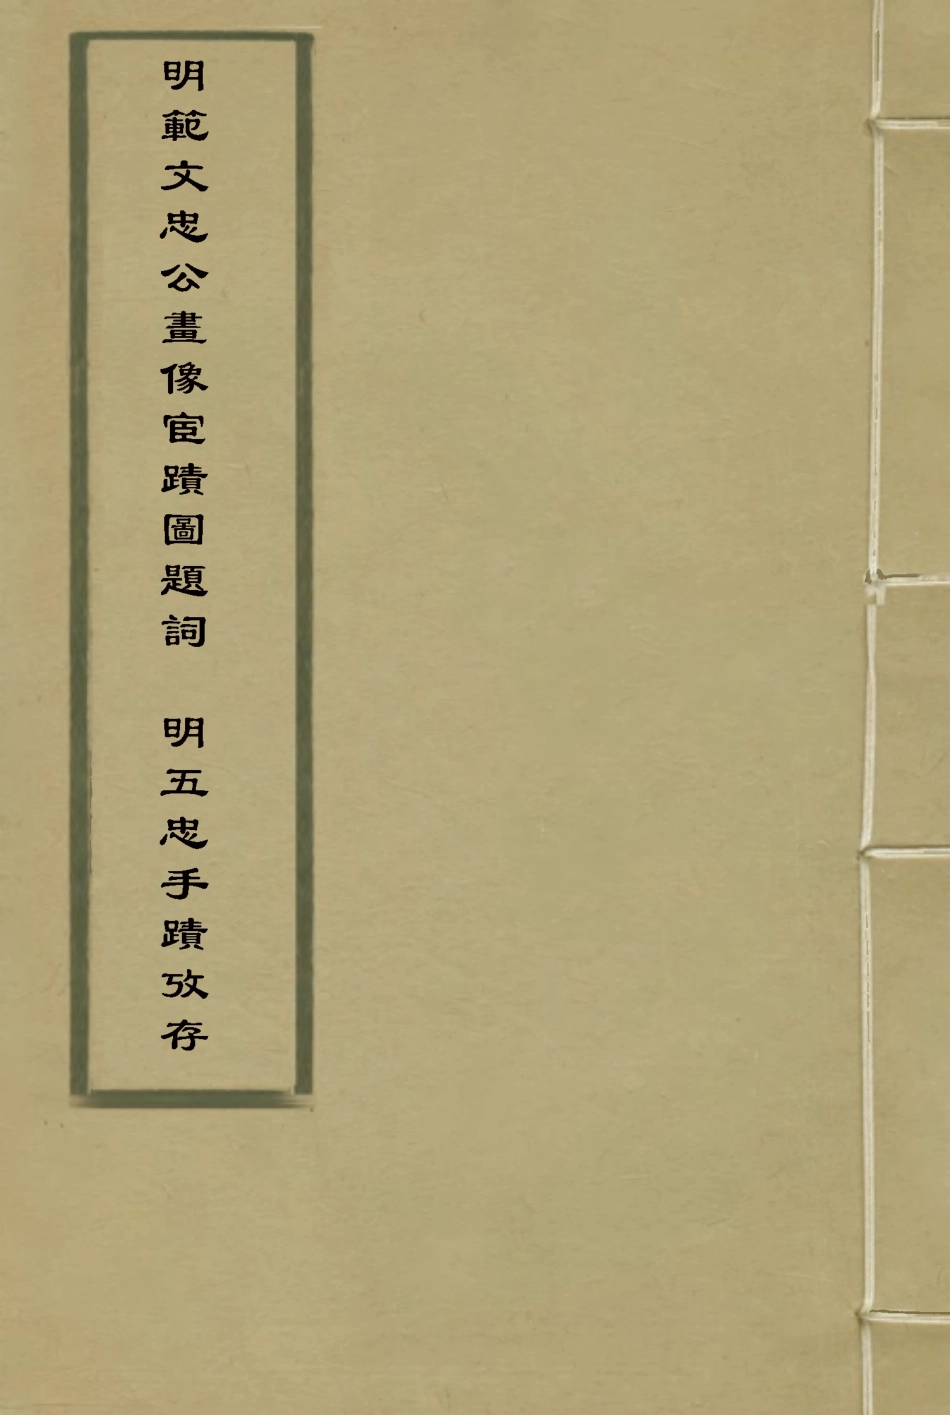 明範文忠公畫像宦蹟圖題詞 明五忠手蹟攷存